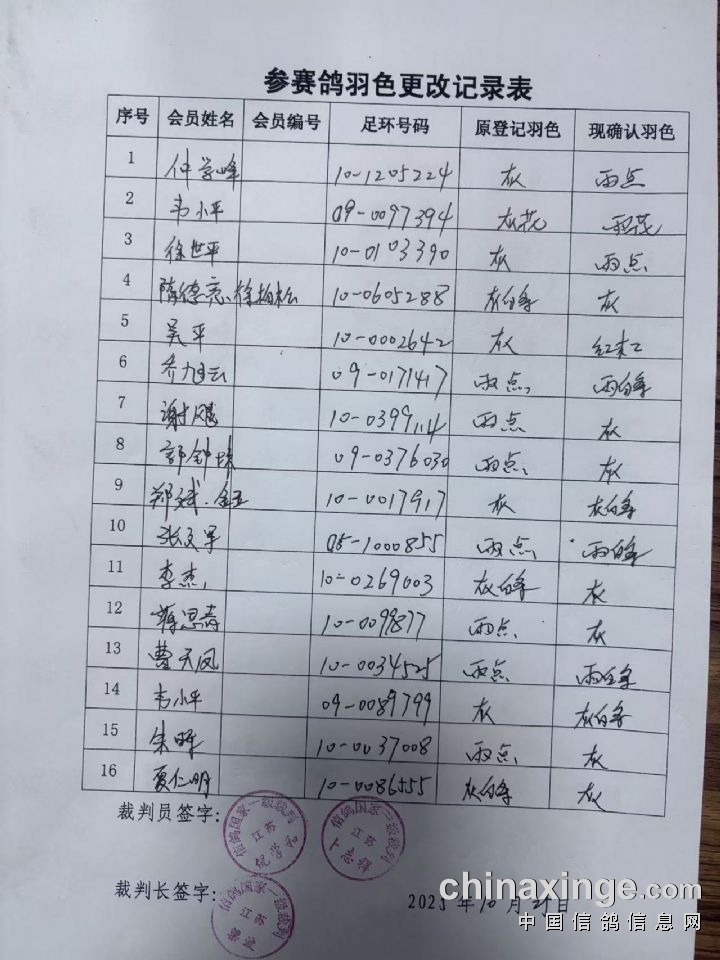 参赛鸽羽色更改记录表
序号 会员姓名 会员编号 足环号码 原登记羽色 现确认羽色
1 仲学峰 10-1205224 灰 雨点
2 韦小平 09-0097394 灰花 雨花
3 徐世平 10-0103390 灰 雨点
4 隋德亮、徐柏松 10-0605288 灰白条 灰
5 吴平 10-0002642 灰 红轮
6 乔旭云 09-0171417 雨点 雨白条
7 谢飚 10-0399114 雨点 灰
8 郭钟 09-0376030 雨点 灰
9 郑斌 10-0017917 灰 灰白条
10 张 军 05-1000855 雨点 雨白条
11 李杰 10-0269003 灰白条 灰
12 蒋思 10-0099877 雨点 灰
13 曹天凤 10-0034525 雨点 雨白条
14 韦小平 09-0089799 灰 灰白条
15 朱晖 10-0037008 雨点 灰
16 夏仁明 10-0086555 灰白条 灰
裁判员签字:
信鸽国家一级裁判
江苏
信鸽国家一级裁判
江苏
裁判长签字:
江苏
2025年10月 日
chinaxinge.com
中国信鸽信息网